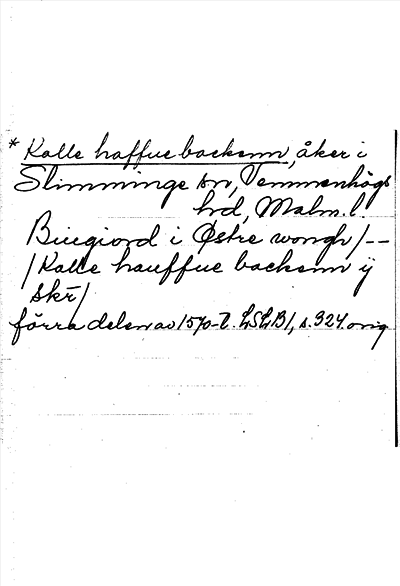 * Kalle haffue backenn, åker i
Slimminge sn, Vemmenhögs
hrd, Malm. l.
Biugiord i Østre wongh /--
/ Kalle hauffue backenn ij
skr̄ /
förra delen av 1570-t. LSLB I, s. 324. orig